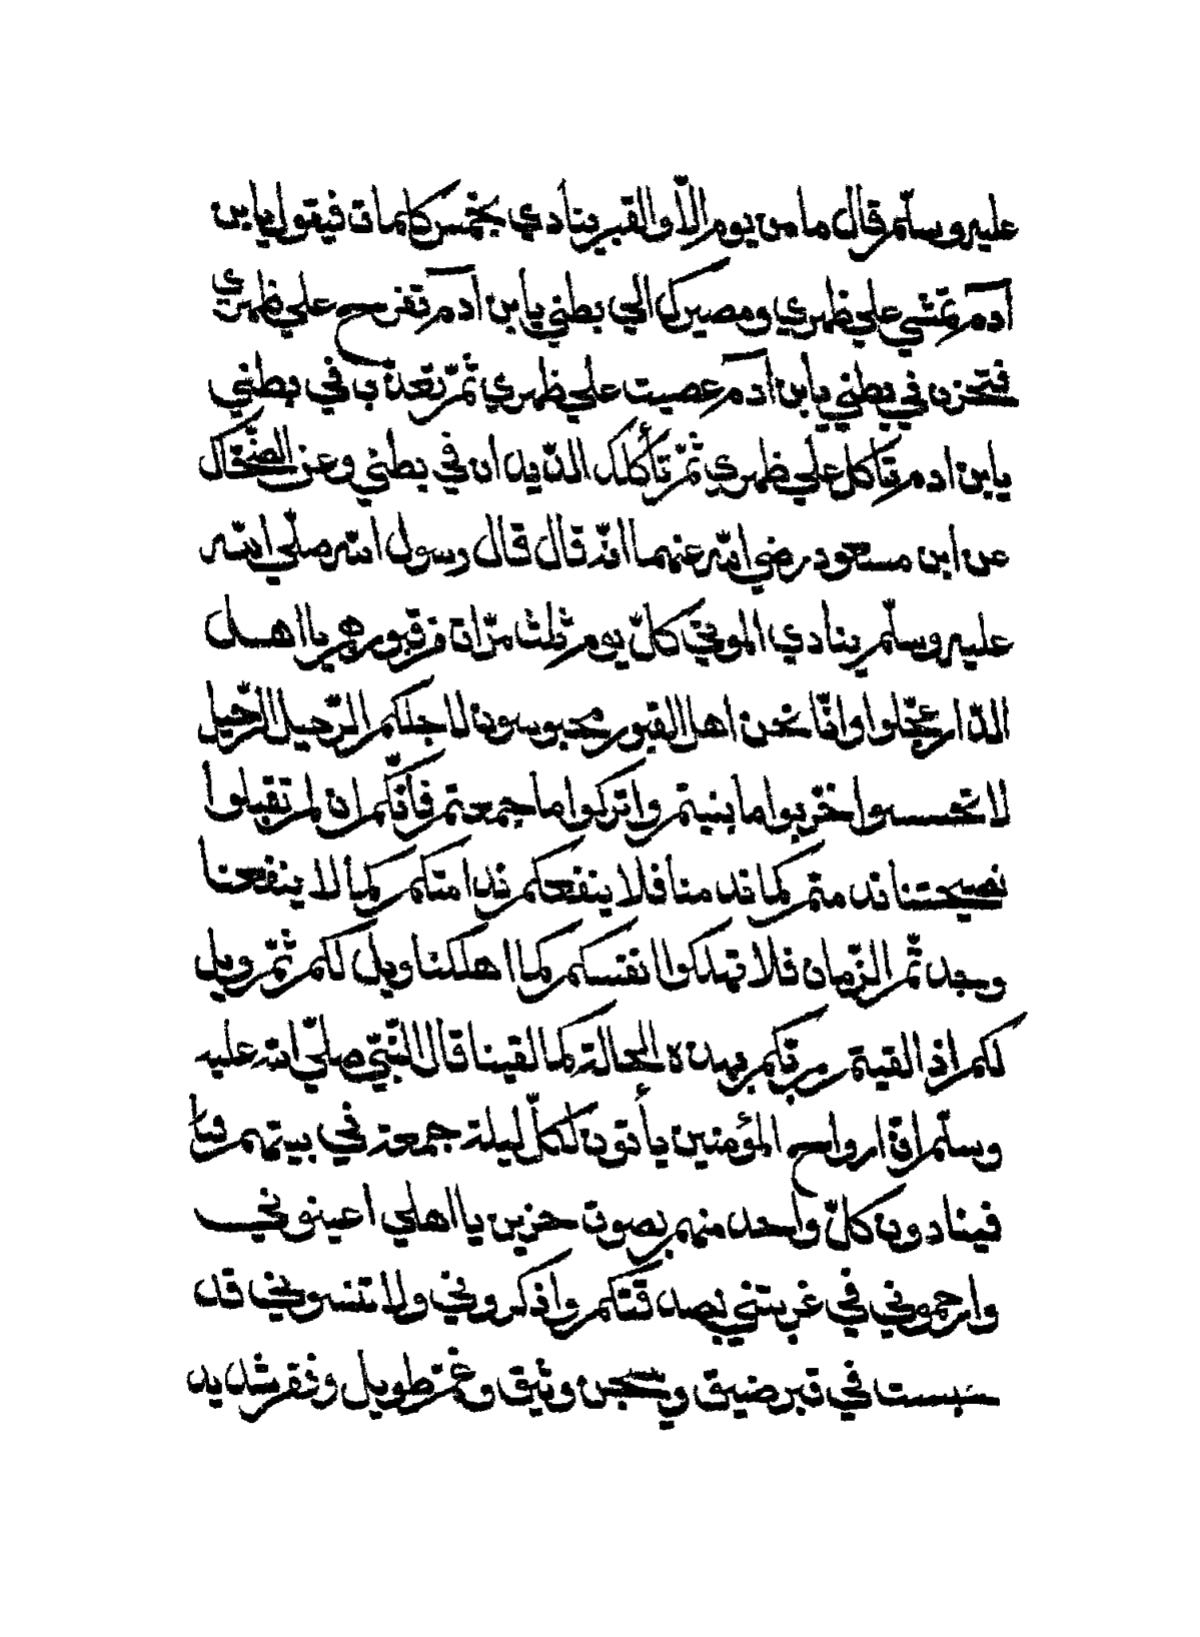 عليه وسلّم قال ما من يوم الّا والقبر ينادي بخمس كلمات فيقول يا بن
آدم تمشي علي ظهري ومصيرك الي بطني يا بن آدم تفرح علي ظهري
فتحزن في بطني يا بن آدم عصيت علي ظهري ثمّ تعذب في بطني
يا بن ادم تاكل علي ظهري ثمّ تأكلك الدّيدان في بطني وعن الضّحّاك
عن ابن مسعود رضي الله عنهما انّه قال قال رسول الله صلّي الله
عليه وسلّم ينادي الموتي كلّ يوم ثلث مرّات من قبورهم يا اهل
الدّار عجّلوا وانّا نحن اهل القبور محبوسون لاجلكم الرّحيل الرّحيل
لا تحسبوا خرّبوا ما بنيتم واتركوا ما جمعتم فانّكم ان لم تقبلوا
نصيحتنا ندمتم كما ندمنا فلا ينفعكم ندامتكم كما لا ينفعنا
وجدتم الزّمان فلا تهلكوا انفسكم كما اهلكنا ويل لكم ثمّ ويل
لكم اذ القيتم ربّكم بهذه الحالة كما لقينا قال النّبيّ صلّي الله عليه
وسلّم انّ ارواح المؤمنين يأتون لكلّ ليلة جمعة في بيتهم
فينادون كلّ واحد منهم بصوت حزين يا اهلي اعينوني
وارحموني في غربتي بصدقتكم واذكروني ولا تنسوني قد
حبست في قبر ضيق وسجن وثيق وغمّ طويل وفقر شديد